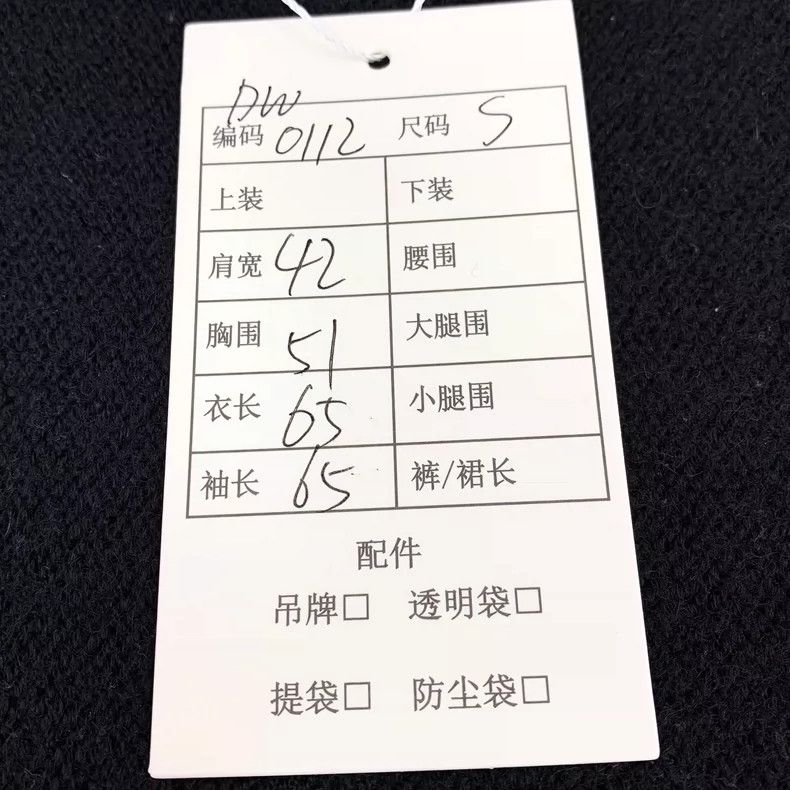 DW
编码 0112 尺码 S
上装 下装
肩宽 42 腰围
胸围 51 大腿围
衣长 65 小腿围
袖长 65 裤/裙长
配件
吊牌□ 透明袋□
提袋□ 防尘袋□